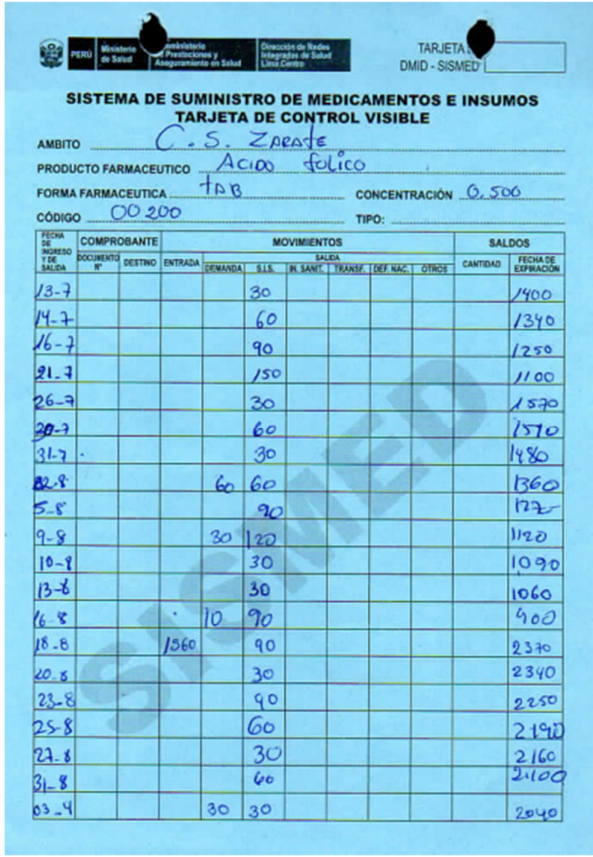 PERÚ Ministerio de Salud Prestaciones y Aseguramiento en Salud Dirección de Redes Integradas de Salud Lima Centro
TARJETA
DMID - SISMED
SISTEMA DE SUMINISTRO DE MEDICAMENTOS E INSUMOS
TARJETA DE CONTROL VISIBLE
AMBITO C.S. ZARATE
PRODUCTO FARMACEUTICO ACIDO folico
FORMA FARMACEUTICA TAB CONCENTRACIÓN 0.500
CÓDIGO 00200 TIPO:
FECHA DE INGRESO Y DE SALIDA COMPROBANTE MOVIMIENTOS SALDOS
DOCUMENTO N° DESTINO ENTRADA SALIDA CANTIDAD FECHA DE EXPIRACIÓN
DEMANDA S.I.S. IN. SANIT. TRANSF. DEF. NAC. OTROS
13-7 30 1400
14-7 60 1340
16-7 90 1250
21-7 150 1100
26-7 30 1570
30-7 60 1510
31-7 30 1480
02-8 60 60 1360
5-8 90
9-8 30 120 1120
10-8 30 1090
13-8 30 1060
16-8 10 90 900
18-8 1560 90 2370
20-8 30 2340
23-8 90 2250
25-8 60 2190
27-8 30 2160
31-8 60 2100
03-9 30 30 2040
SISMED